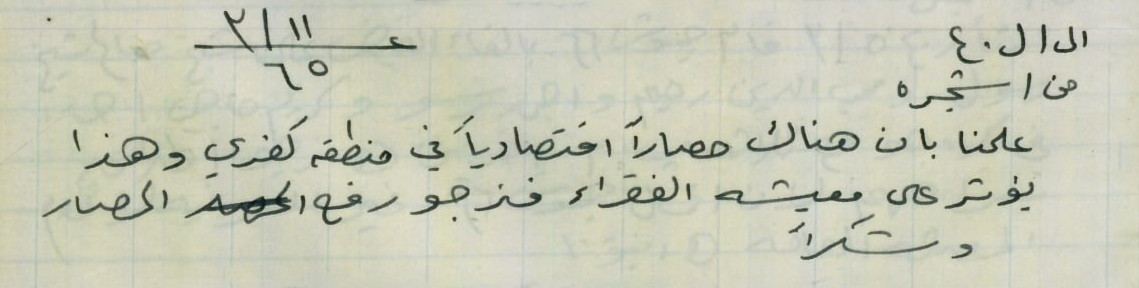 الى ا ل ٤٠
٢/١١
ع
٦٥
من ا ستجره
علمنا بان هناك حصاراً اقتصادياً في منطقه كفري وهذا
يؤثر على معيشه الفقراء فنرجو رفع الحصار
وشكراً